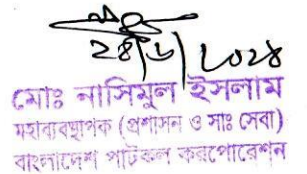 ২৪/৬/২০২৪
মোঃ নাসিমুল ইসলাম
মহাব্যবস্থাপক (প্রশাসন ও সাঃ সেবা)
বাংলাদেশ পাটকল করপোরেশন